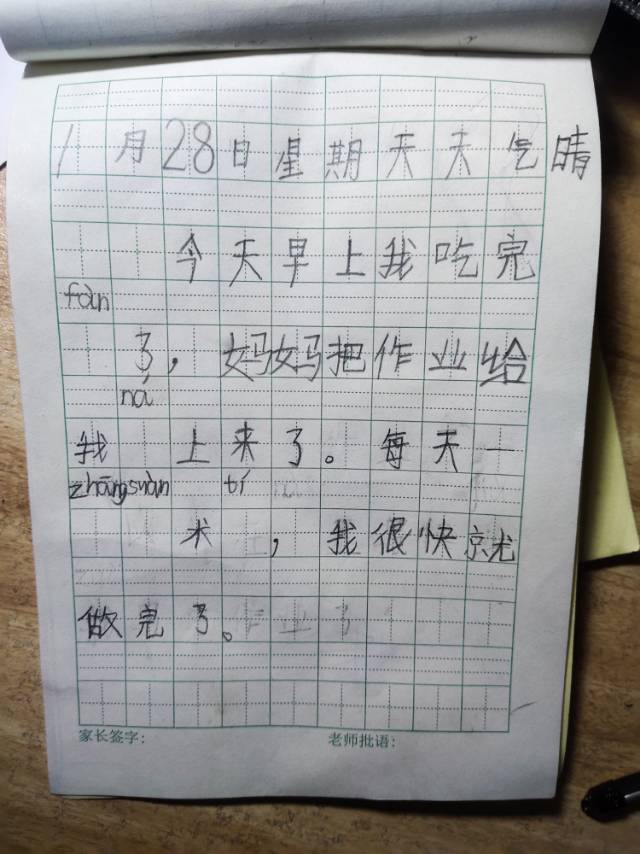 1月28日星期天天气晴
今天早上我吃完
fàn
了，妈妈把作业给
ná
我 上来了。每天一
zhāng suàn tí
术 ，我很快就
做完了。
家长签字： 老师批语：